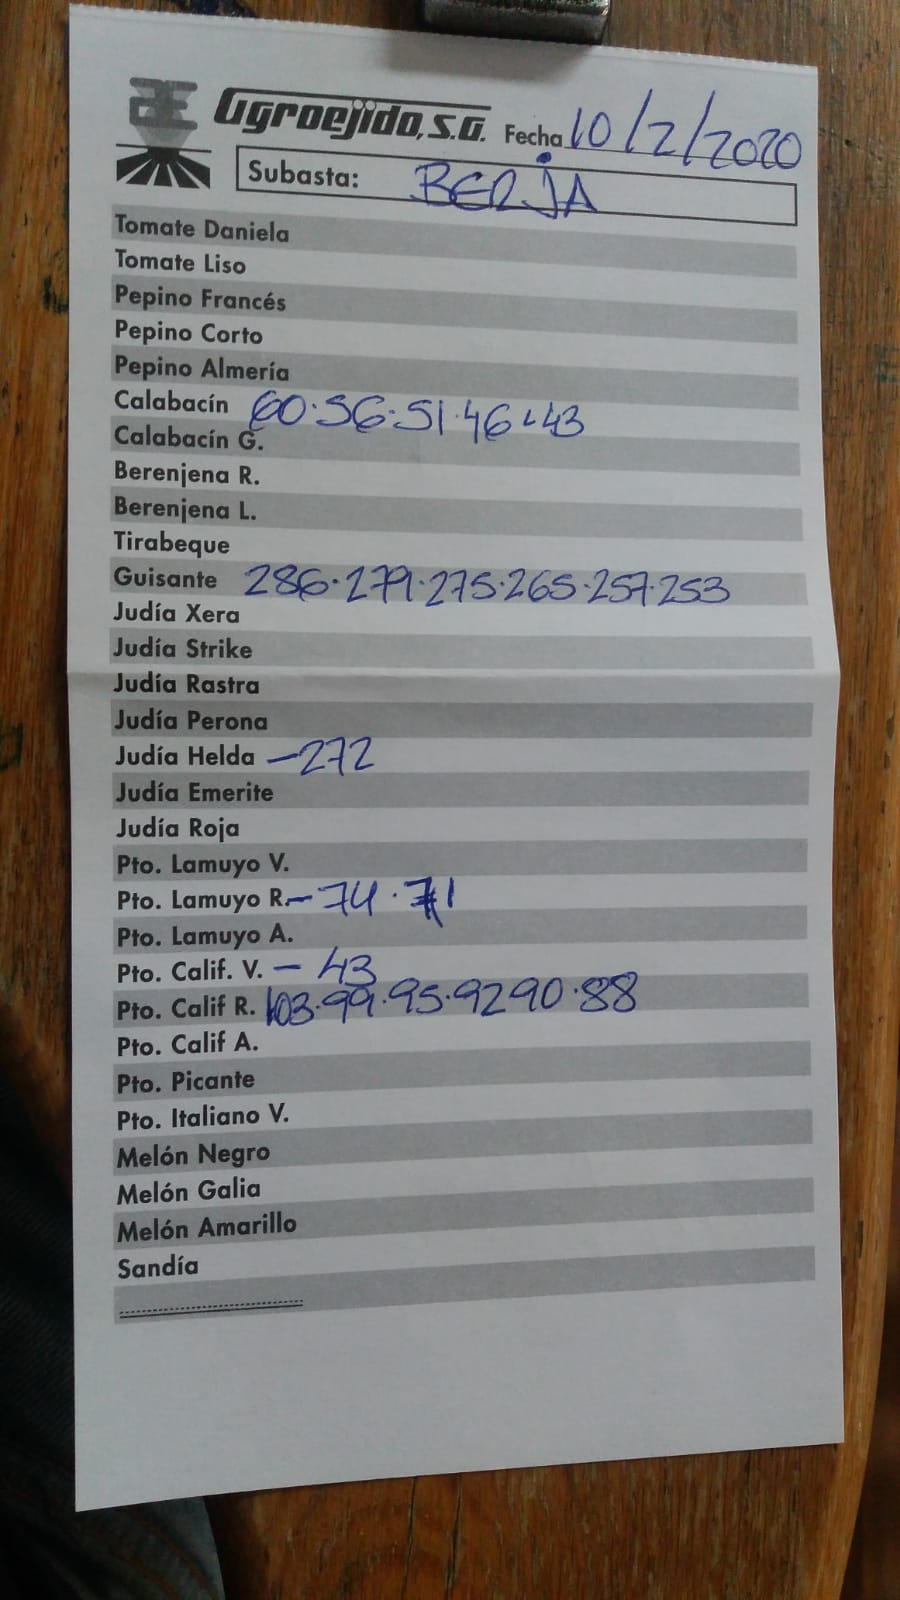 AE Agroejido, S.A. Fecha 10/2/2020
Subasta: BERJA
Tomate Daniela
Tomate Liso
Pepino Francés
Pepino Corto
Pepino Almería
Calabacín 60·56·51·46·43
Calabacín G.
Berenjena R.
Berenjena L.
Tirabeque
Guisante 286·279·275·265·257·253
Judía Xera
Judía Strike
Judía Rastra
Judía Perona
Judía Helda -272
Judía Emerite
Judía Roja
Pto. Lamuyo V.
Pto. Lamuyo R. - 74·71
Pto. Lamuyo A.
Pto. Calif. V. - 43
Pto. Calif R. 103·99·95·92 90·88
Pto. Calif A.
Pto. Picante
Pto. Italiano V.
Melón Negro
Melón Galia
Melón Amarillo
Sandía